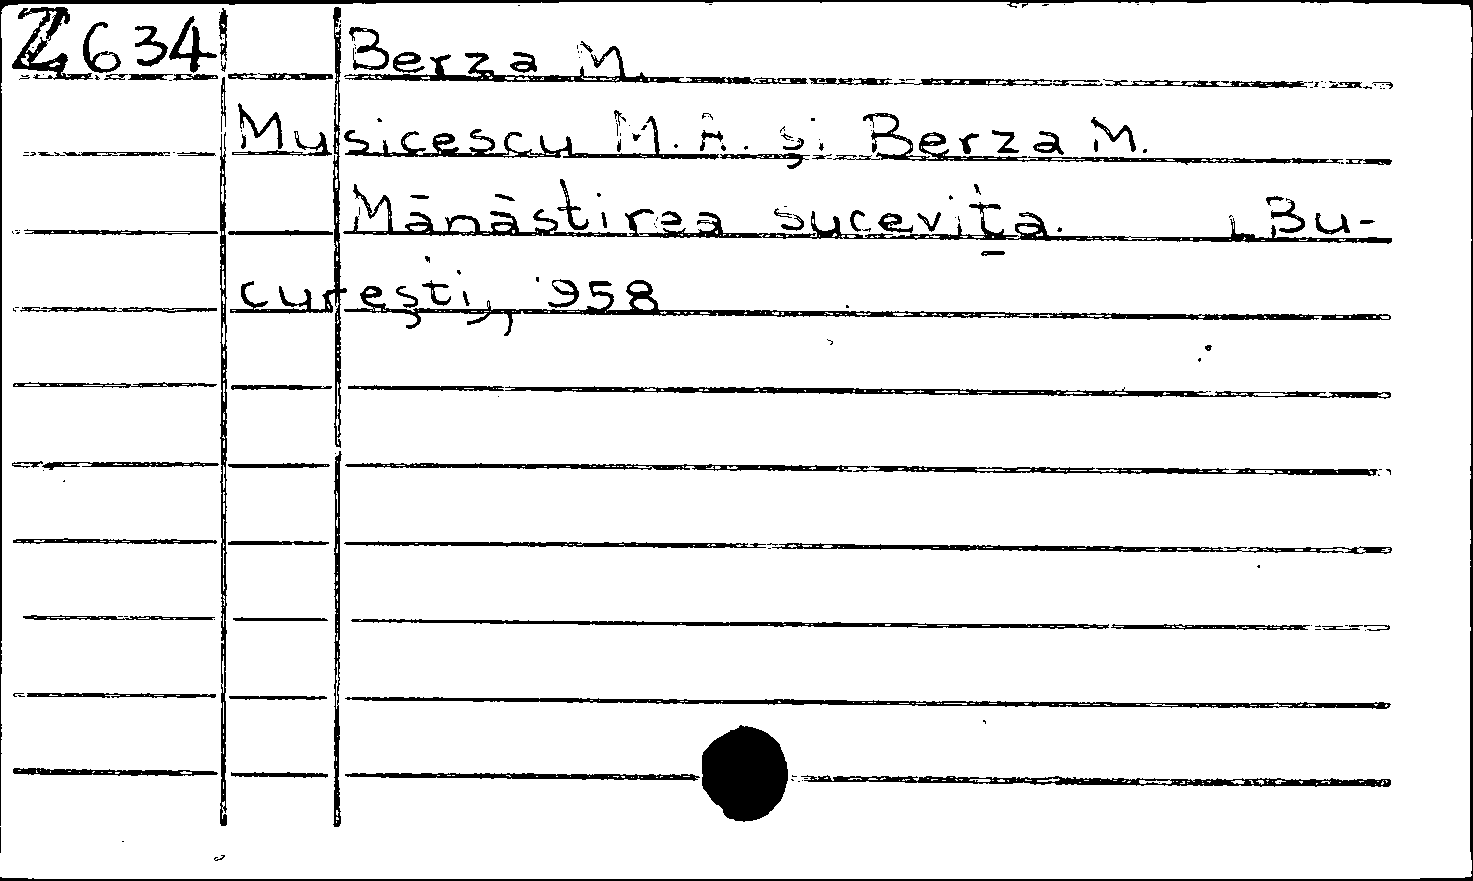 Z634 Berza M.
Musicescu M.A. și Berza M.
Mānāstirea sucevița. [Bu-
curești], 958